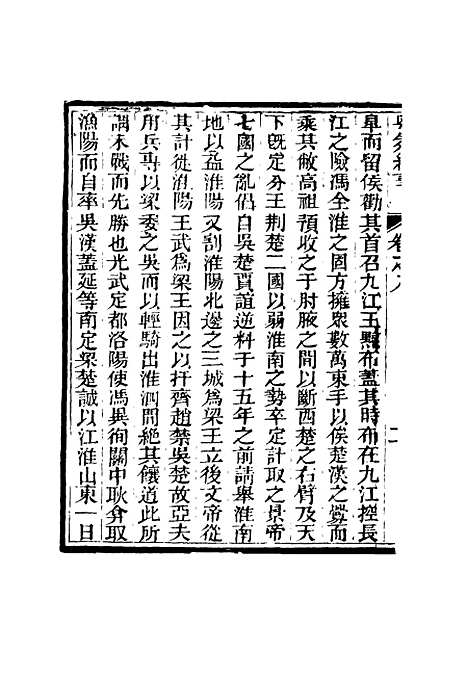 卷之八
阜而留侯勸其首召九江王黥布蓋其時布在九江控長
江之險馮全淮之固方擁衆數萬東手以俟楚漢之釁而
乘其敝高祖預收之于肘腋之間以斷西楚之右臂及天
下既定分王荆楚二國以弱淮南之勢卒定計取之景帝
七國之亂倡自吳楚賈誼逆料于十五年之前請舉淮南
地以益淮陽又割淮陽北邊之三城爲梁王立後文帝從
其計徙淮陽王武爲梁王因之以扞齊趙禁吳楚故亞夫
用兵專以梁委之吳而以輕騎出淮泗間絕其饟道此所
謂未戰而先勝也光武定都洛陽使馮異徇關中耿弇取
漁陽而自率吳漢蓋延等南定梁楚誠以江淮山東一日